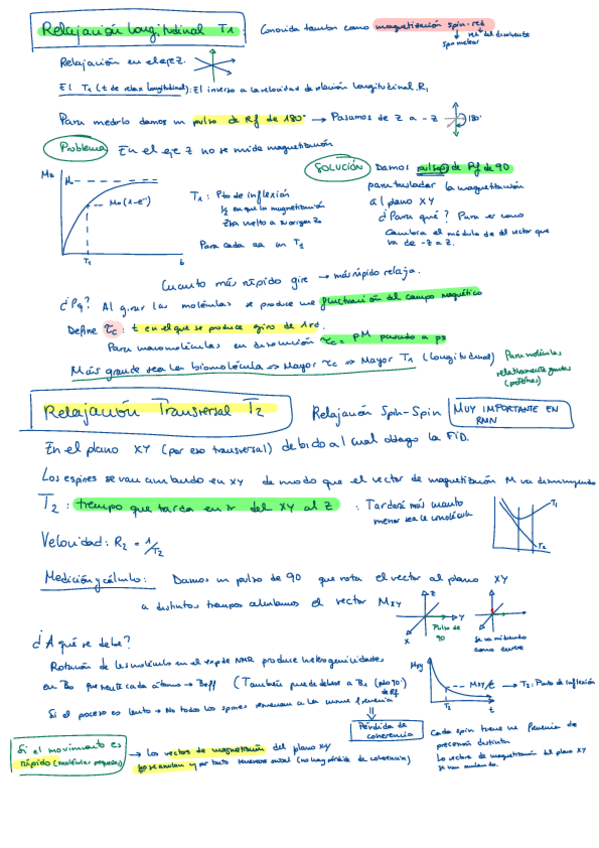 Relajación Longitudinal T1: Conocida también como magnetización spin-red
spin red del disolvente
Relajación en el eje Z.
El T1 (t de relax longitudinal): El inverso a la velocidad de relación longitudinal. R1
Para medirlo damos un pulso de Rf de 180° → Pasamos de Z a -Z 180°
Problema En el eje Z no se mide magnetización
SOLUCIÓN Damos pulso de Rf de 90
para trasladar la magnetización
al plano XY
¿Para qué? Para ver como
cambia el módulo de del vector que
va de -Z a Z.
Mz
M0(1-e⁻¹)
T1 t
T1: Pto de inflexión
en que la magnetización
vuelto a su origen Z0
Para cada un T1
Cuanto más rápido gire → más rápido relaja.
¿Pq? Al girar las moléculas se produce una fluctuación del campo magnético
Define τc: t en el que se produce giro de 1 rad.
Para macromoléculas en disolución τc =
Más grande sea la biomolécula ⇒ Mayor τc ⇒ Mayor T1 (Longitudinal) Para moléculas
relativamente grandes
(proteínas)
Relajación Transversal T2 Relajación Spin-Spin MUY IMPORTANTE EN
RMN
En el plano XY (por eso transversal) debido al cual obtengo la FID.
Los espines se van cambiando en XY de modo que el vector de magnetización M va disminuyendo
T2: tiempo que tarda en ir del XY al Z : Tardará más cuanto
menor sea la molécula
T1
T2
Velocidad: R2 = 1/T2
Medición y cálculo: Damos un pulso de 90 que rota el vector al plano XY
a distintos tiempos calculamos el vector MXY
Z
Y
X
Pulso de
90
¿A qué se debe?
Rotación de las moléculas en el exp de NMR produce heterogeneidades
en B0 que siente cada átomo → Beff (También puede deberse a B1 (pulso 90°)
de Rf
Mxy
T2 t
→ T2: Punto de inflexión
Si el proceso es lento → No todos los spines a la misma frecuencia
Pérdida de
coherencia
Cada spin tiene una frecuencia de
precesión distinta
Los vectores de magnetización del plano XY
se van anulando.
Si el movimiento es
rápido (moléculas pequeñas)
→ Los vectores de magnetización del plano XY
no se anulan y por tanto tenemos señal (no hay pérdida de coherencia)